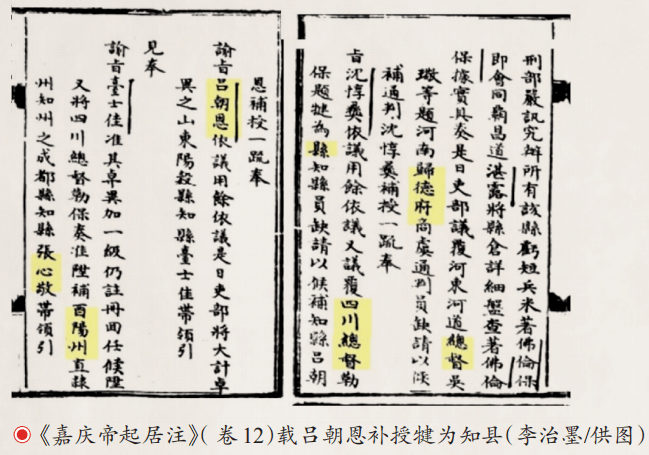 刑部嚴訊究辦所有該縣虧短兵米著佛倫保
即會同霸昌道湛露將縣倉詳細盤查著佛倫
保據實具奏是日吏部議覆河東河道總督吳
璥等題河南歸德府商虞通判員缺請以候
補通判沈惇彝補授一疏奉
旨沈惇彝依議用餘依議又議覆四川總督勒
保題犍為縣知縣員缺請以候補知縣呂朝
恩補授一疏奉
諭旨呂朝恩依議用餘依議是日吏部將大計卓
異之山東陽穀縣知縣臺士佳帶領引
見奉
諭旨臺士佳准其卓異加一級仍註冊回任候陞
又將四川總督勒保奏准陞補酉陽州直隸
州知州之成都縣知縣張心敬帶領引
《嘉庆帝起居注》(卷12)载吕朝恩补授犍为知县(李治墨/供图)